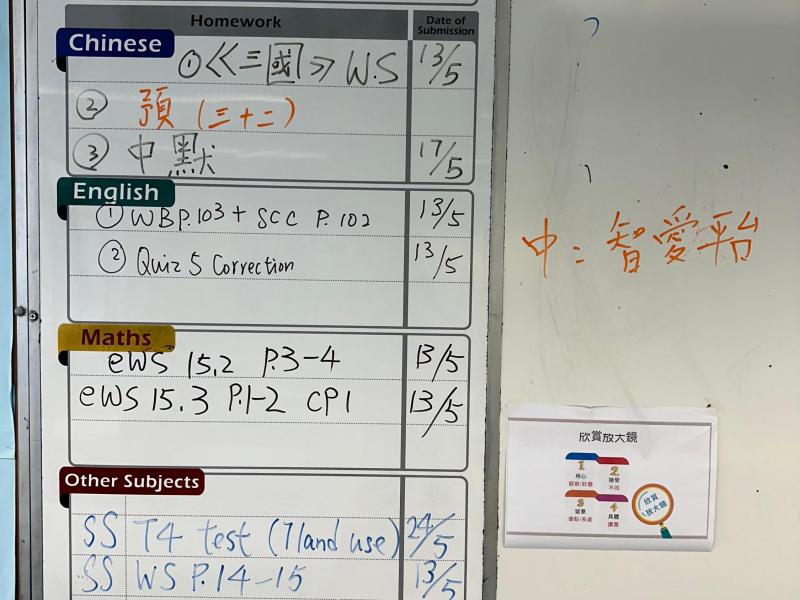 Homework
Date of Submission
Chinese
①《三國》W.S 13/5
② 預(三十二)
③ 中默 17/5
English
① WB P.103 + SCC P.102 13/5
② Quiz 5 Correction 13/5
Maths
eWS 15.2 P.3-4 13/5
eWS 15.3 P.1-2 CP1 13/5
Other Subjects
SS T4 test (7land use) 24/5
SS WS P.14-15 13/5
中:智愛平台
欣賞放大鏡
1 2
用心 接受
觀察/聆聽 不同
3 4
留意 具體
優點/長處 讚賞
欣賞
放大鏡